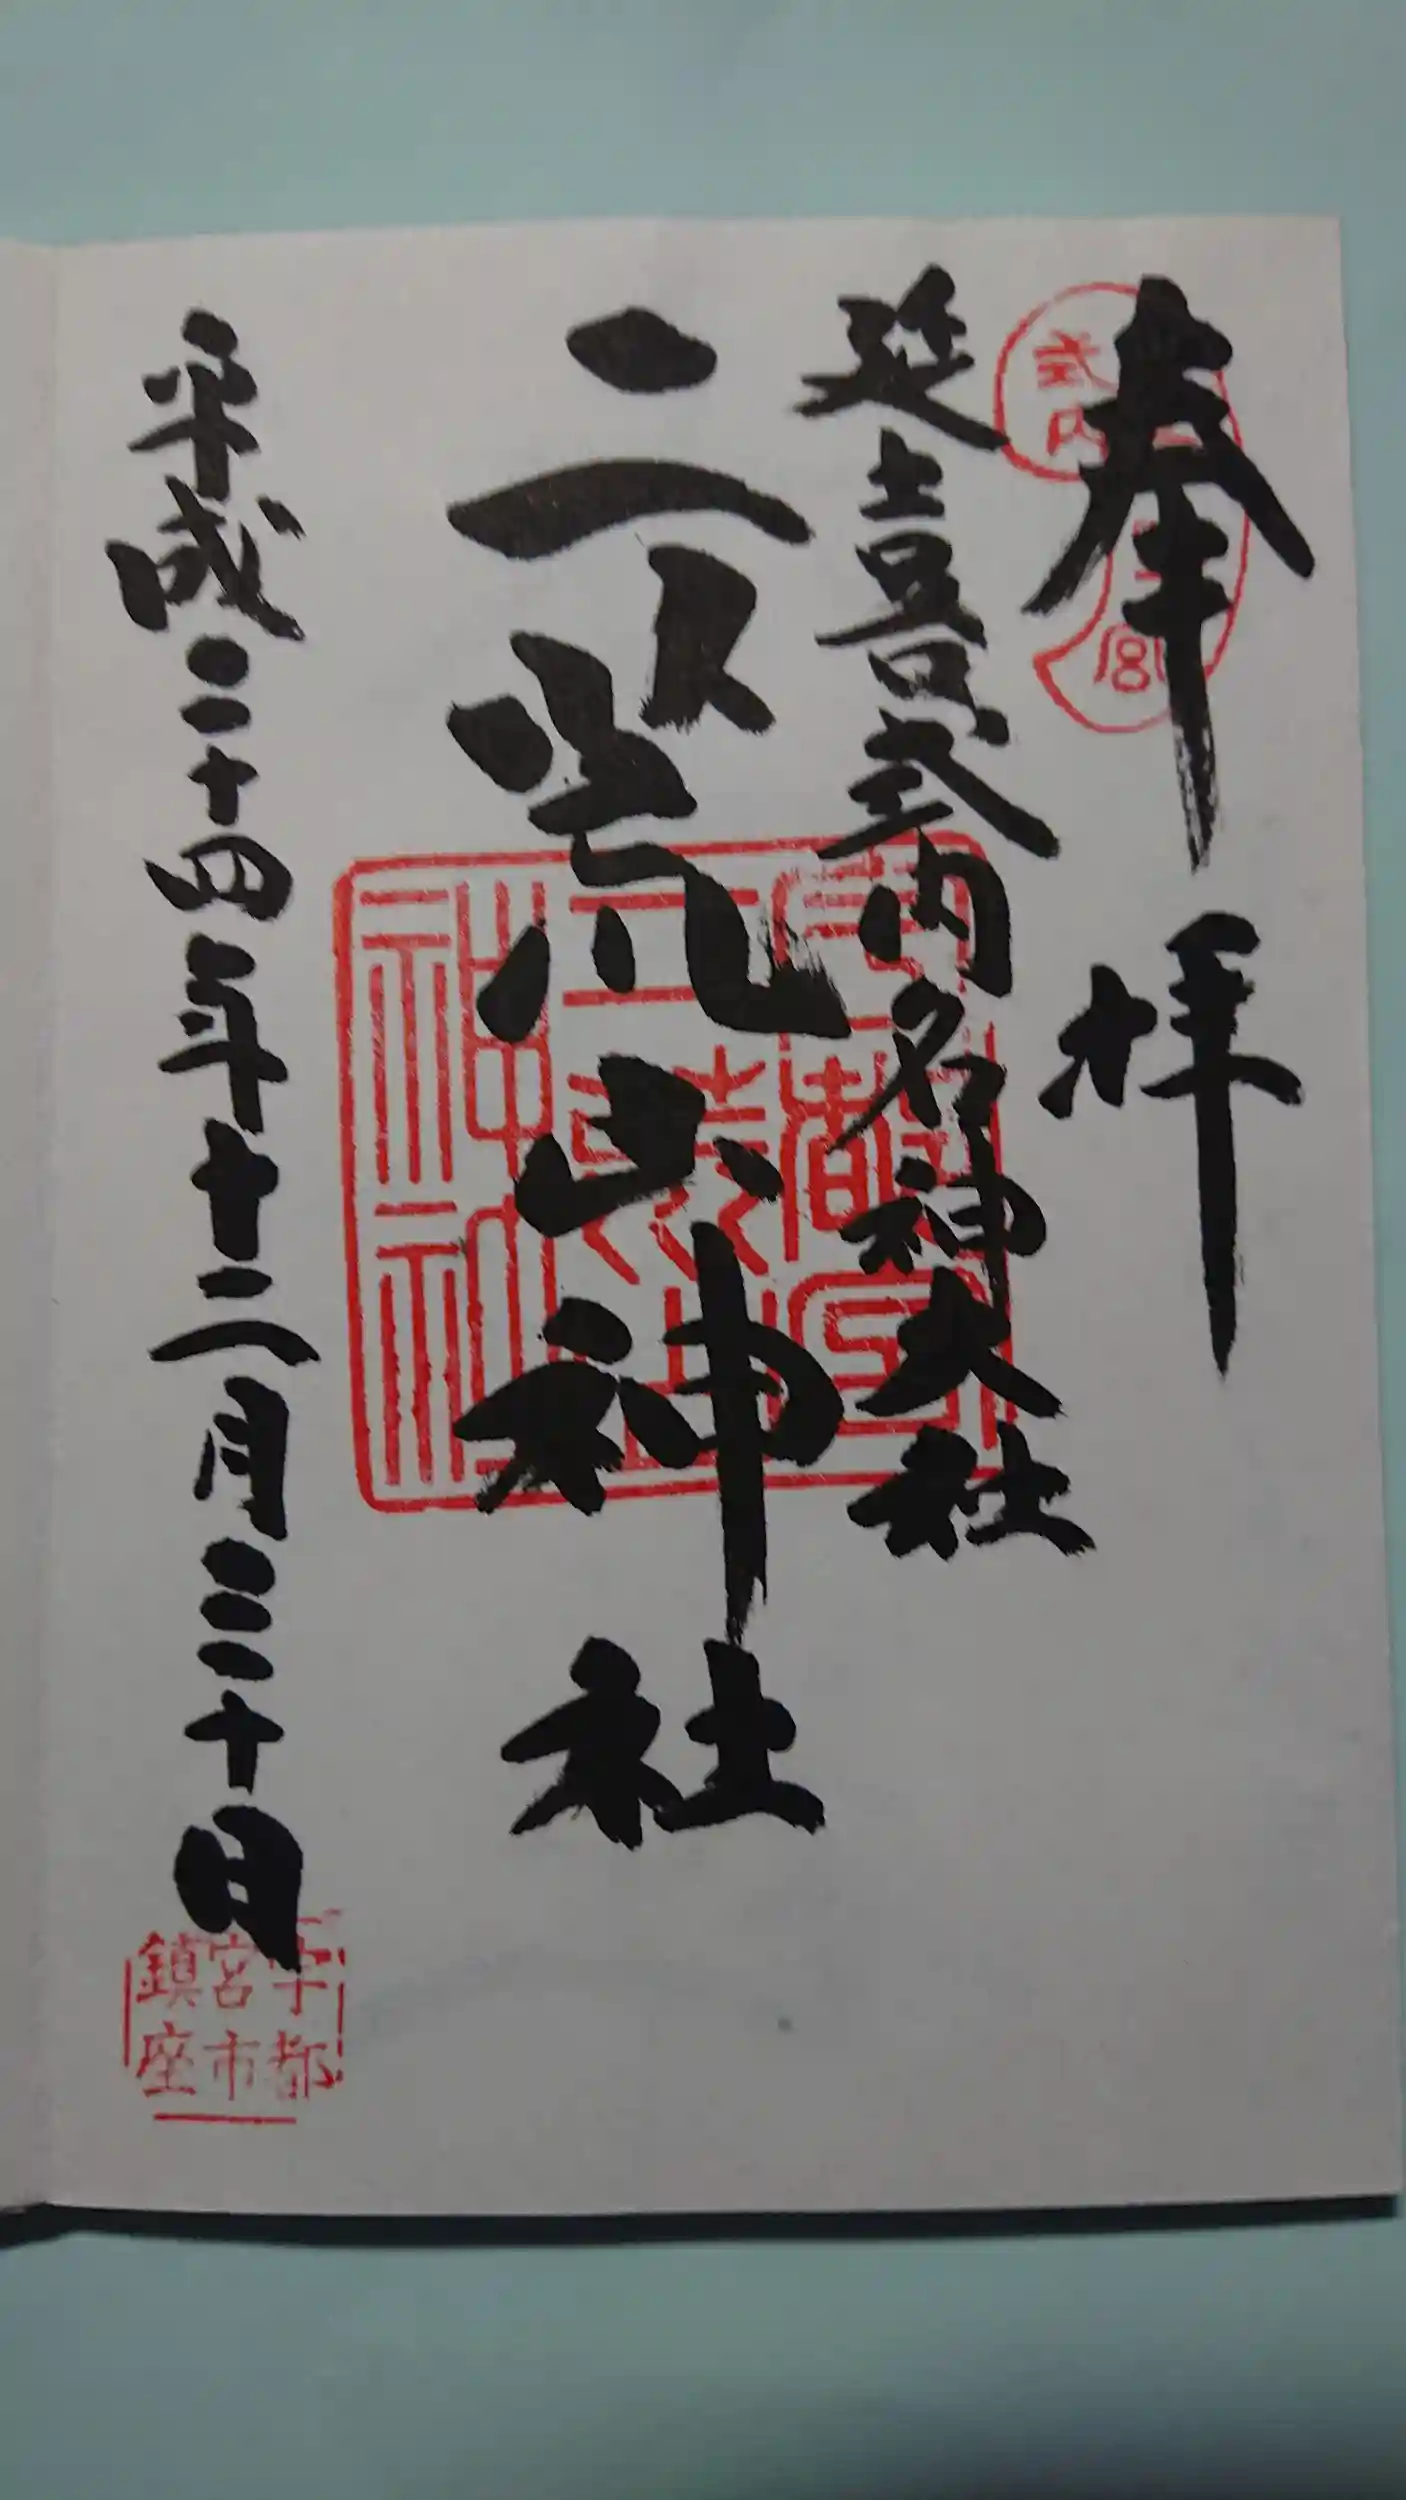 奉拝
延喜式内名神大社
二荒山神社
平成二十四年十二月三十日
式内
宮
宇都宮二荒山神社神社
宇都
宮市
鎮座